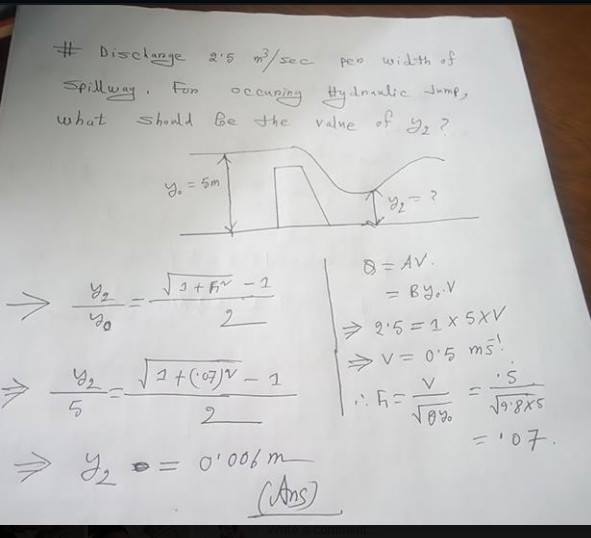 # Discharge 2.5 m³/sec per width of
Spillway. For occuring Hydraulic Jump,
what should be the value of y₂ ?
y₀ = 5m
y₂ = ?
⇒ y₂/y₀ = (√(1 + Fr²) - 1)/2
⇒ y₂/5 = (√(1 + (.07)²) - 1)/2
⇒ y₂ = 0.006 m
(Ans)
Q = AV.
= By₀.V
⇒ 2.5 = 1 × 5 × V
⇒ V = 0.5 ms⁻¹
∴ Fr = V/√(gy₀) = .5/√(9.8×5)
= .07.